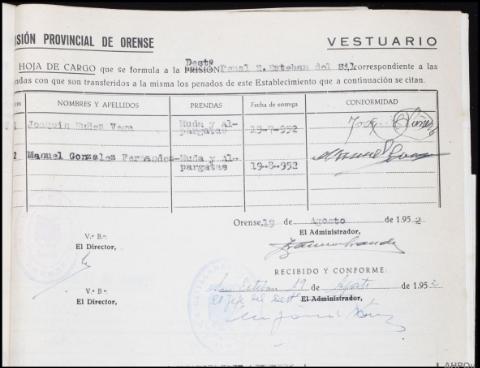 ISIÓN PROVINCIAL DE ORENSE
VESTUARIO
Destº
HOJA DE CARGO que se formula a la PRISIÓN Penal S. Esteban del Sil correspondiente a las
ndas con que son transferidos a la misma los penados de este Establecimiento que a continuación se citan.
NOMBRES Y APELLIDOS
PRENDAS
Fecha de entrega
CONFORMIDAD
1
Joaquin Nuñez Vera
Muda y Al-
pargatas
19-7-952
Jose
2
Manuel Gonzalez Fernandez-Muda y Al-
pargatas
19-8-952
Manuel
Orense, 19 de Agosto de 1.952
V.º B.º
El Director,
El Administrador,
RECIBIDO Y CONFORME:
San Esteban 19 de Agosto de 1.952
V.º B.º
El Director,
El Jefe del Destº
El Administrador,